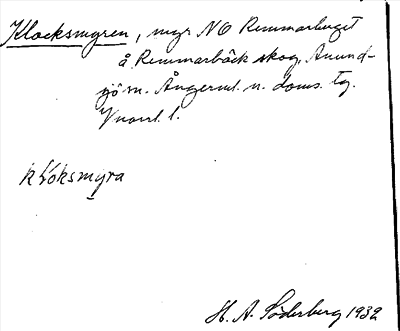 Klocksmyren, myr NO Remmarberget
å Remmarbäck skog, Anund-
sjö sn. Ångerml. n. doms. tg.
Vnorrl. l.
klóksmyra
H. A. Söderberg 1932